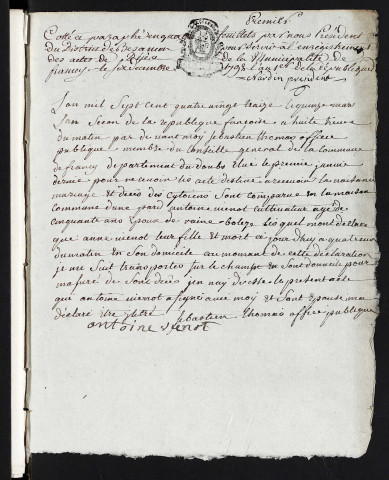 Premier
Cotté et paraphé en quatre feuillets par nous Président
du District de Besançon pour servir à l'enregistrement
des actes de Décès de la Municipalité de
francey le six décembre 1792 l'an 1er de la République
Nardin président
L'an mil Sept Cent quatre vingt treize le quinze mars
l'an Second de la republique francoise a huite heure
du matin par de vant moy sebastien thomas office
publique membre du Conseille general de la Commune
de francy departement du doubs Elue le premie janvie
dernie pour recevoir les acte destine a recevoir la naissance
mariage et decès des Cytoiens Sont comparue en la maison
Commune d'une pard antoine vienot Cultivateur agé de
Cinquante ans Epoux de raine bolez lesquel mont declare
que anne vienot leur fille Et mort a jourdhuy a quatre heure
du matin en Son domicile au moment de cette declaration
je me Suit transportés Sur le Champt en Sont domicile pour
m'asuré de Son decès jen nay dressé le present acte
que antoine viennot a Signé avec moy et Sont Epouse ma
declaré Etre yletré Sebastien thomas office publique
antoine vienot